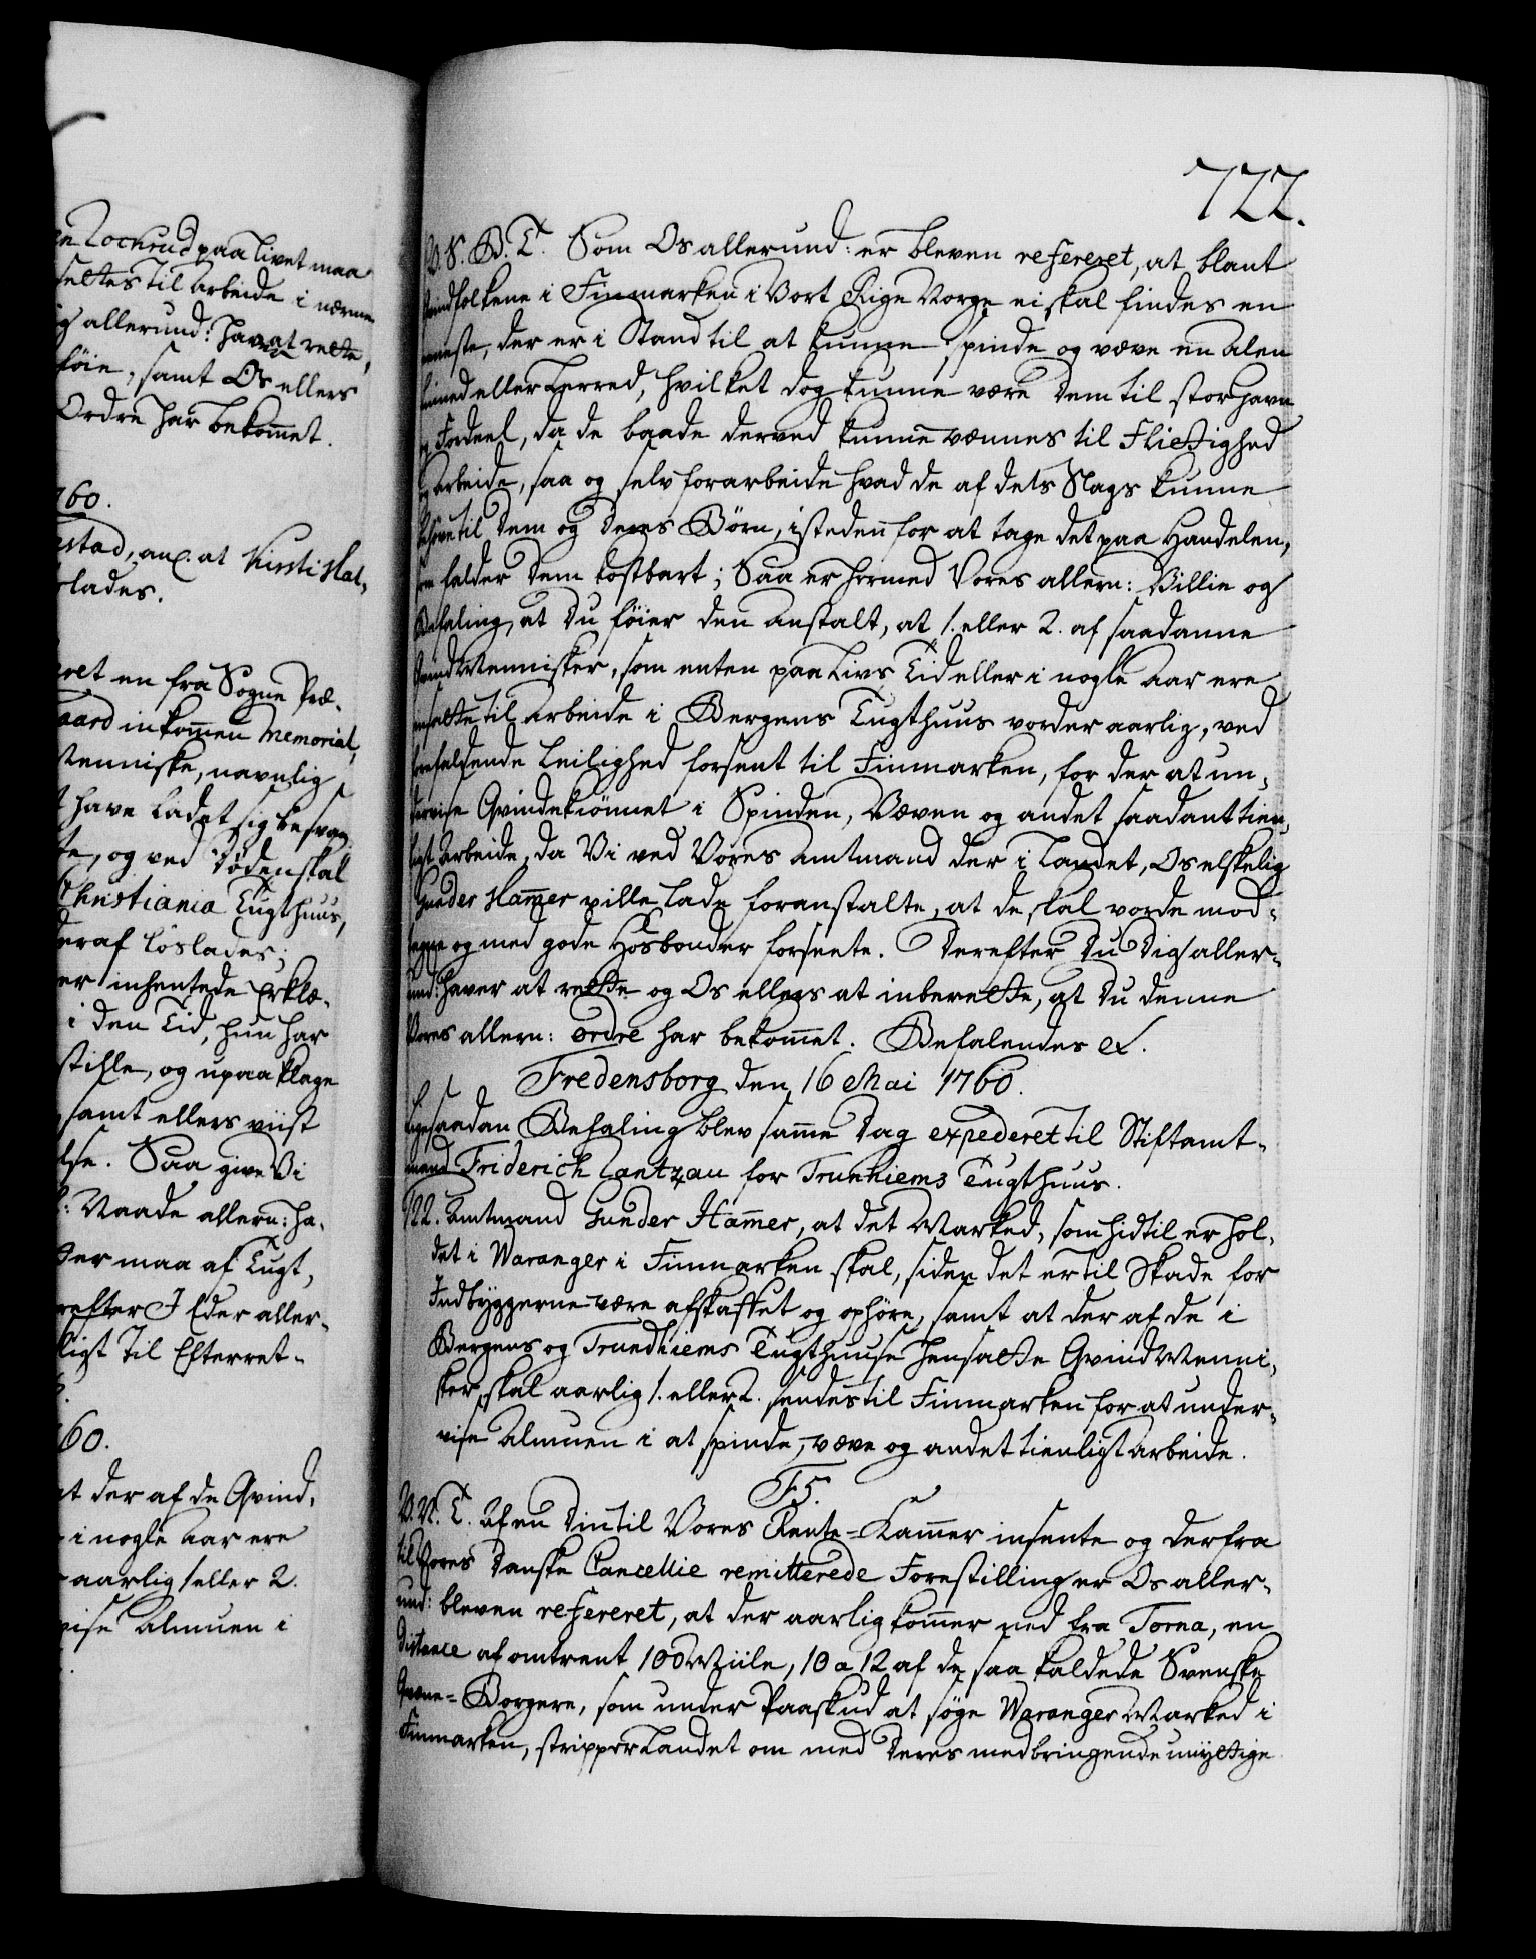 en Locherud paa Livet maa
settes til Arbeide i nærme
allerund: haver at rette,
føie, samt Os ellers
Ordre har bekommet.
760.
estad, anl. at Kirsti Hal-
slades.
en fra Sogne Præ-
gaard indkommen Memorial,
Menniske, navnlig
have ladet sig besvan
og ved Døden skal
Christiania Tugthuus,
deraf løslades;
er inhentede Erklæ-
i den Tid, hun har
stille, og upaaklage
samt ellers viist
else. Saa give Vi
Naade allern: ha-
maa af Tugt,
erefter I Eder aller-
ligt til Efterret-
60.
at der af de Qvind-
i nogle Aar ere
aarlig 1 eller 2.
vise Almuen i
722.
V. S. G. T. Som Os allerund: er bleven refereret, at blant
Qvindfolkene i Finmarken i Vort Rige Norge ei skal findes en
eneste, der er i Stand til at kunne spinde og væve en Alen
Linned eller Lerred, hvilket dog kunne være dem til stor Gavn
og Fordeel, da de baade derved kunne vænnes til Flittighed
og Arbeide, saa og selv forarbeide hvad de af dets Slags kunne
behøve til dem og deres Børn, isteden for at tage det paa Handelen,
som falder dem kostbart; Saa er hermed Vores allern: Villie og
Befaling, at du føier den Anstalt, at 1. eller 2. af saadanne
Qvind Mennisker, som enten paa Livs Tid eller i nogle Aar ere
hensatte til Arbeide i Bergens Tugthuus vorder aarlig, ved
forefaldende Leilighed forsent til Finmarken, for der at un-
dervise Qvindekiønnet i Spinden, Væven og andet saadant tien-
ligt Arbeide, da Vi ved Vores Amtmand der i Landet, Os elskelig
Gunder Hammer ville lade foranstalte, at de skal vorde mod-
tagne og med gode Hosbonder forsente. Derefter Du Dig aller-
und: haver at rette og Os ellers at inberette, at Du denne
Vores allern: Ordre har bekommet. Befalendes etc.
Fredensborg den 16 Mai 1760.
Ligesaadan Befaling blev samme Dag expederet til Stiftamt-
mand Friderich Rantzau for Trunhiems Tugthuus.
722. Amtmand Gunder Hammer, at det Marked, som hidtil er hol-
det i Waranger i Finmarken skal, siden det er til Skade for
Indbyggerne være afskaffet og ophöre, samt at der af de i
Bergens og Trundhiems Tugthuuse hensatte Qvind Menni-
sker, skal aarlig 1. eller 2. sendes til Finmarken for at under-
vise Almuen i at spinde, væve og andet tienligt Arbeide.
F5.
V. N. T. Af en Din til Vores Rente-Kammer insente og derfra
til Vores Danske Cancellie remitterede Forestilling er Os aller-
und: bleven refereret, at der aarlig kommer ned fra Torna, en
Distance af omtrent 100 Miile, 10 a 12 af de saa kaldede Svenske
Qvæne-Borgere, som under Paaskud at søge Waranger Marked i
Finmarken, stripper Landet om med deres medbringende unyttige